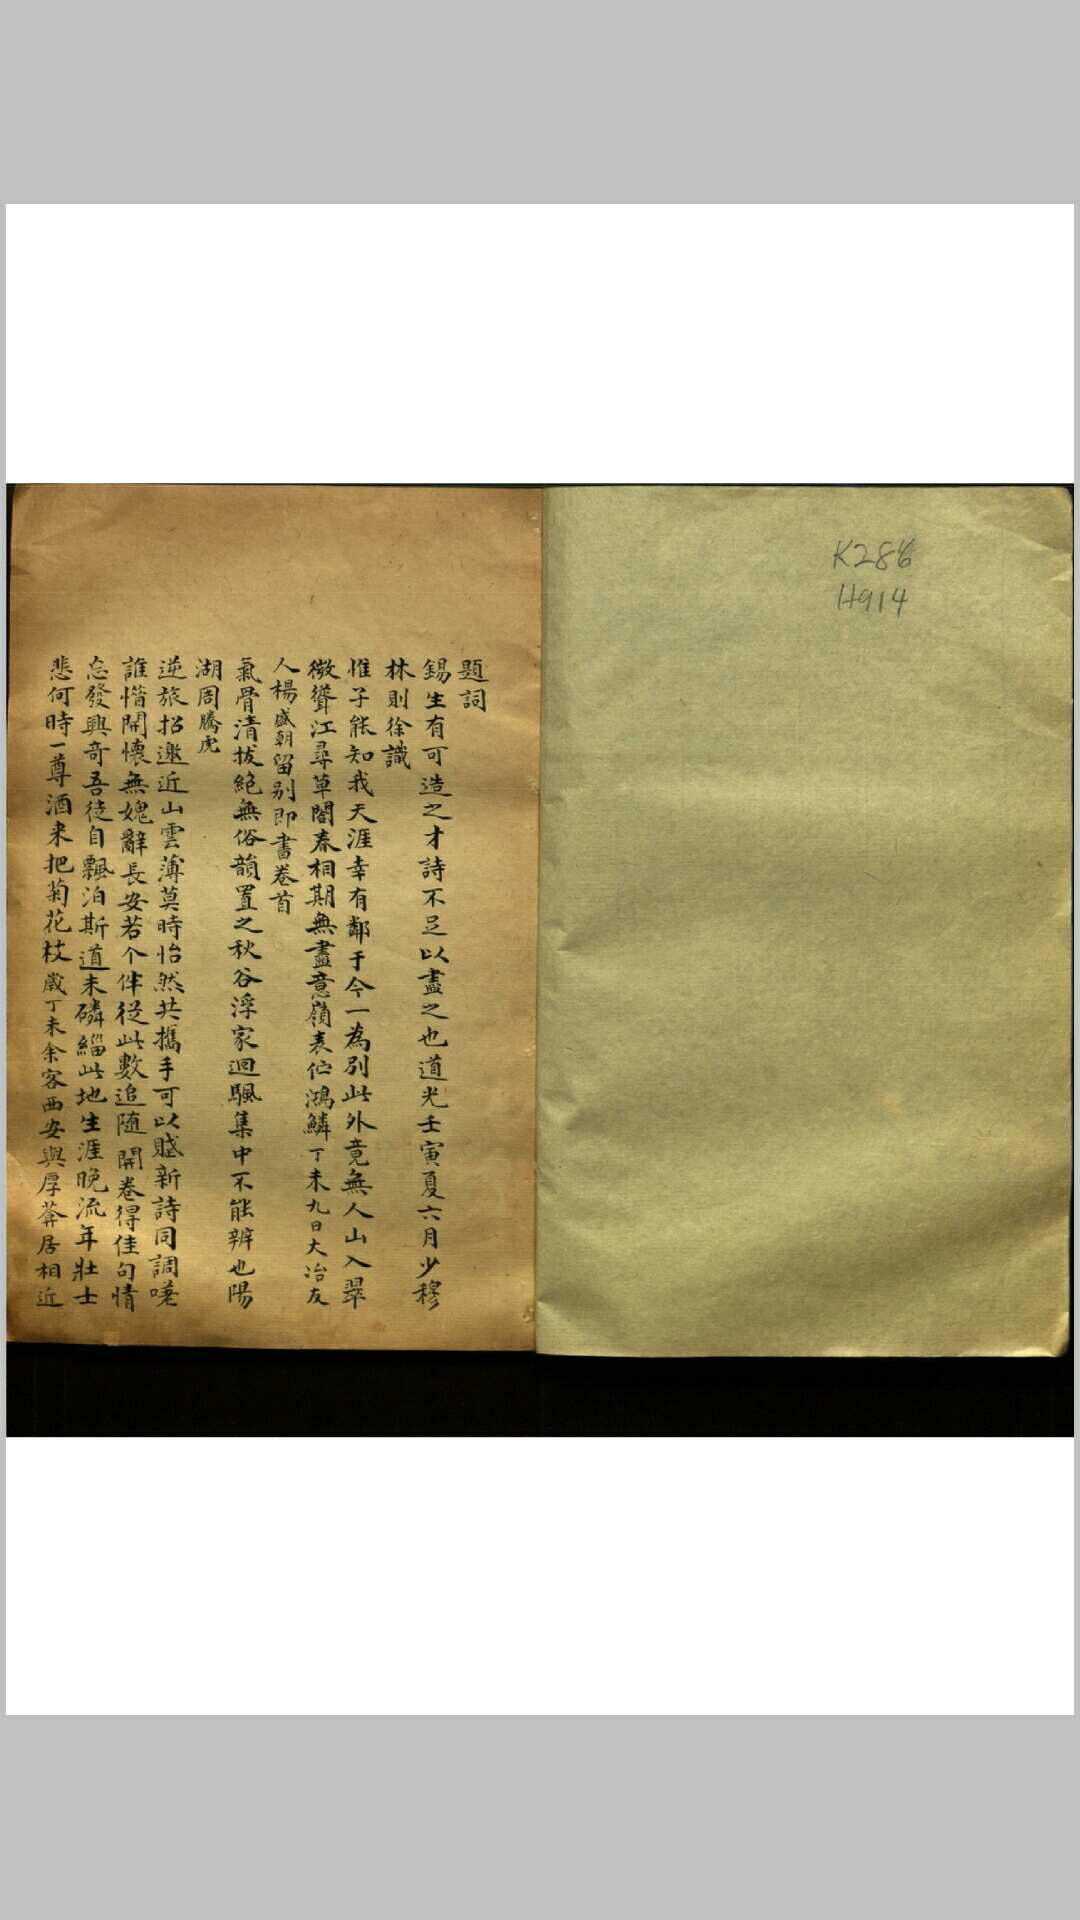 K286
H914
題詞
錫生有可造之才詩不足以盡之也道光壬寅夏六月少穆
林則徐識
惟子能知我天涯幸有鄰于今一為別此外竟無人山入翠
微聳江尋草閣春相期無盡意嶺表伫鴻鱗丁未九日大冶友
人楊盛朝留別即書卷首
氣骨清拔絕無俗韻置之秋谷浮家迴颿集中不能辨也陽
湖周騰虎
逆旅招邀近山雲薄莫時怡然共攜手可以賦新詩同調嗟
誰惜開懷無媿辭長安若个伴從此數追隨開卷得佳句情
忘發興奇吾徒自飄泊斯道未磷緇此地生涯晚流年壯士
悲何時一尊酒来把菊花杖歲丁未余客西安與厚葊居相近